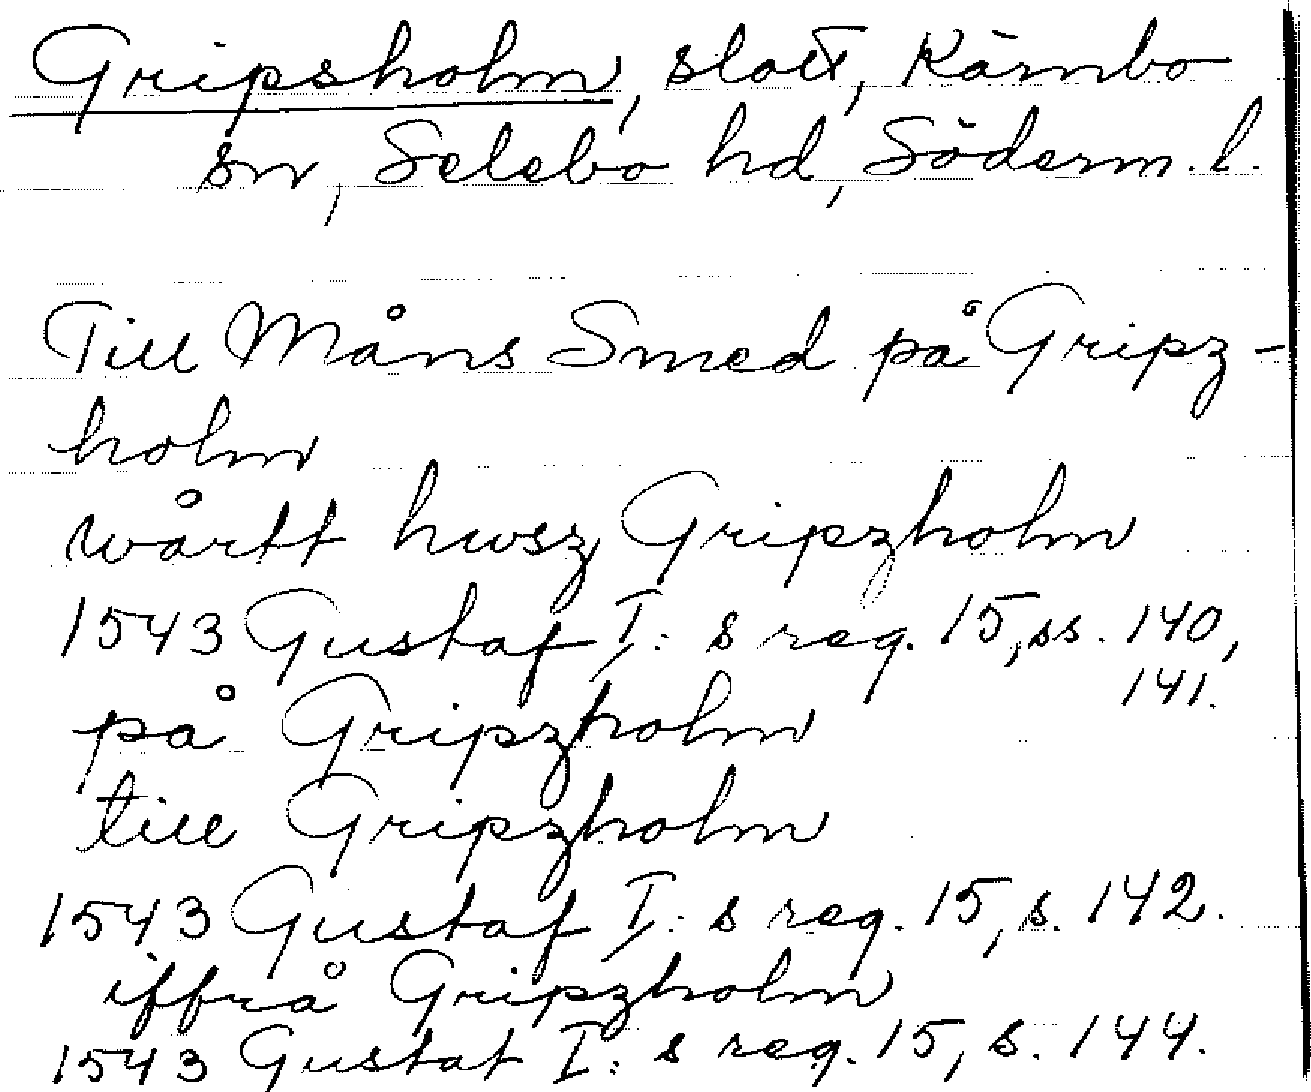 Gripsholm, slott, Kärnbo
sn, Selebo hd, Söderm. l.
Till Måns Smed på Gripz-
holm
wårtt hwsz Gripzholm
1543 Gustaf I: s reg. 15, ss. 140,
141.
på Gripzholm
till Gripzholm
1543 Gustaf I: s reg. 15, s. 142.
iffrå Gripzholm
1543 Gustaf I: s reg. 15, s. 144.